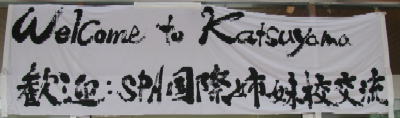 Welcome to Katsuyama
歓迎:SPA国際姉妹校交流